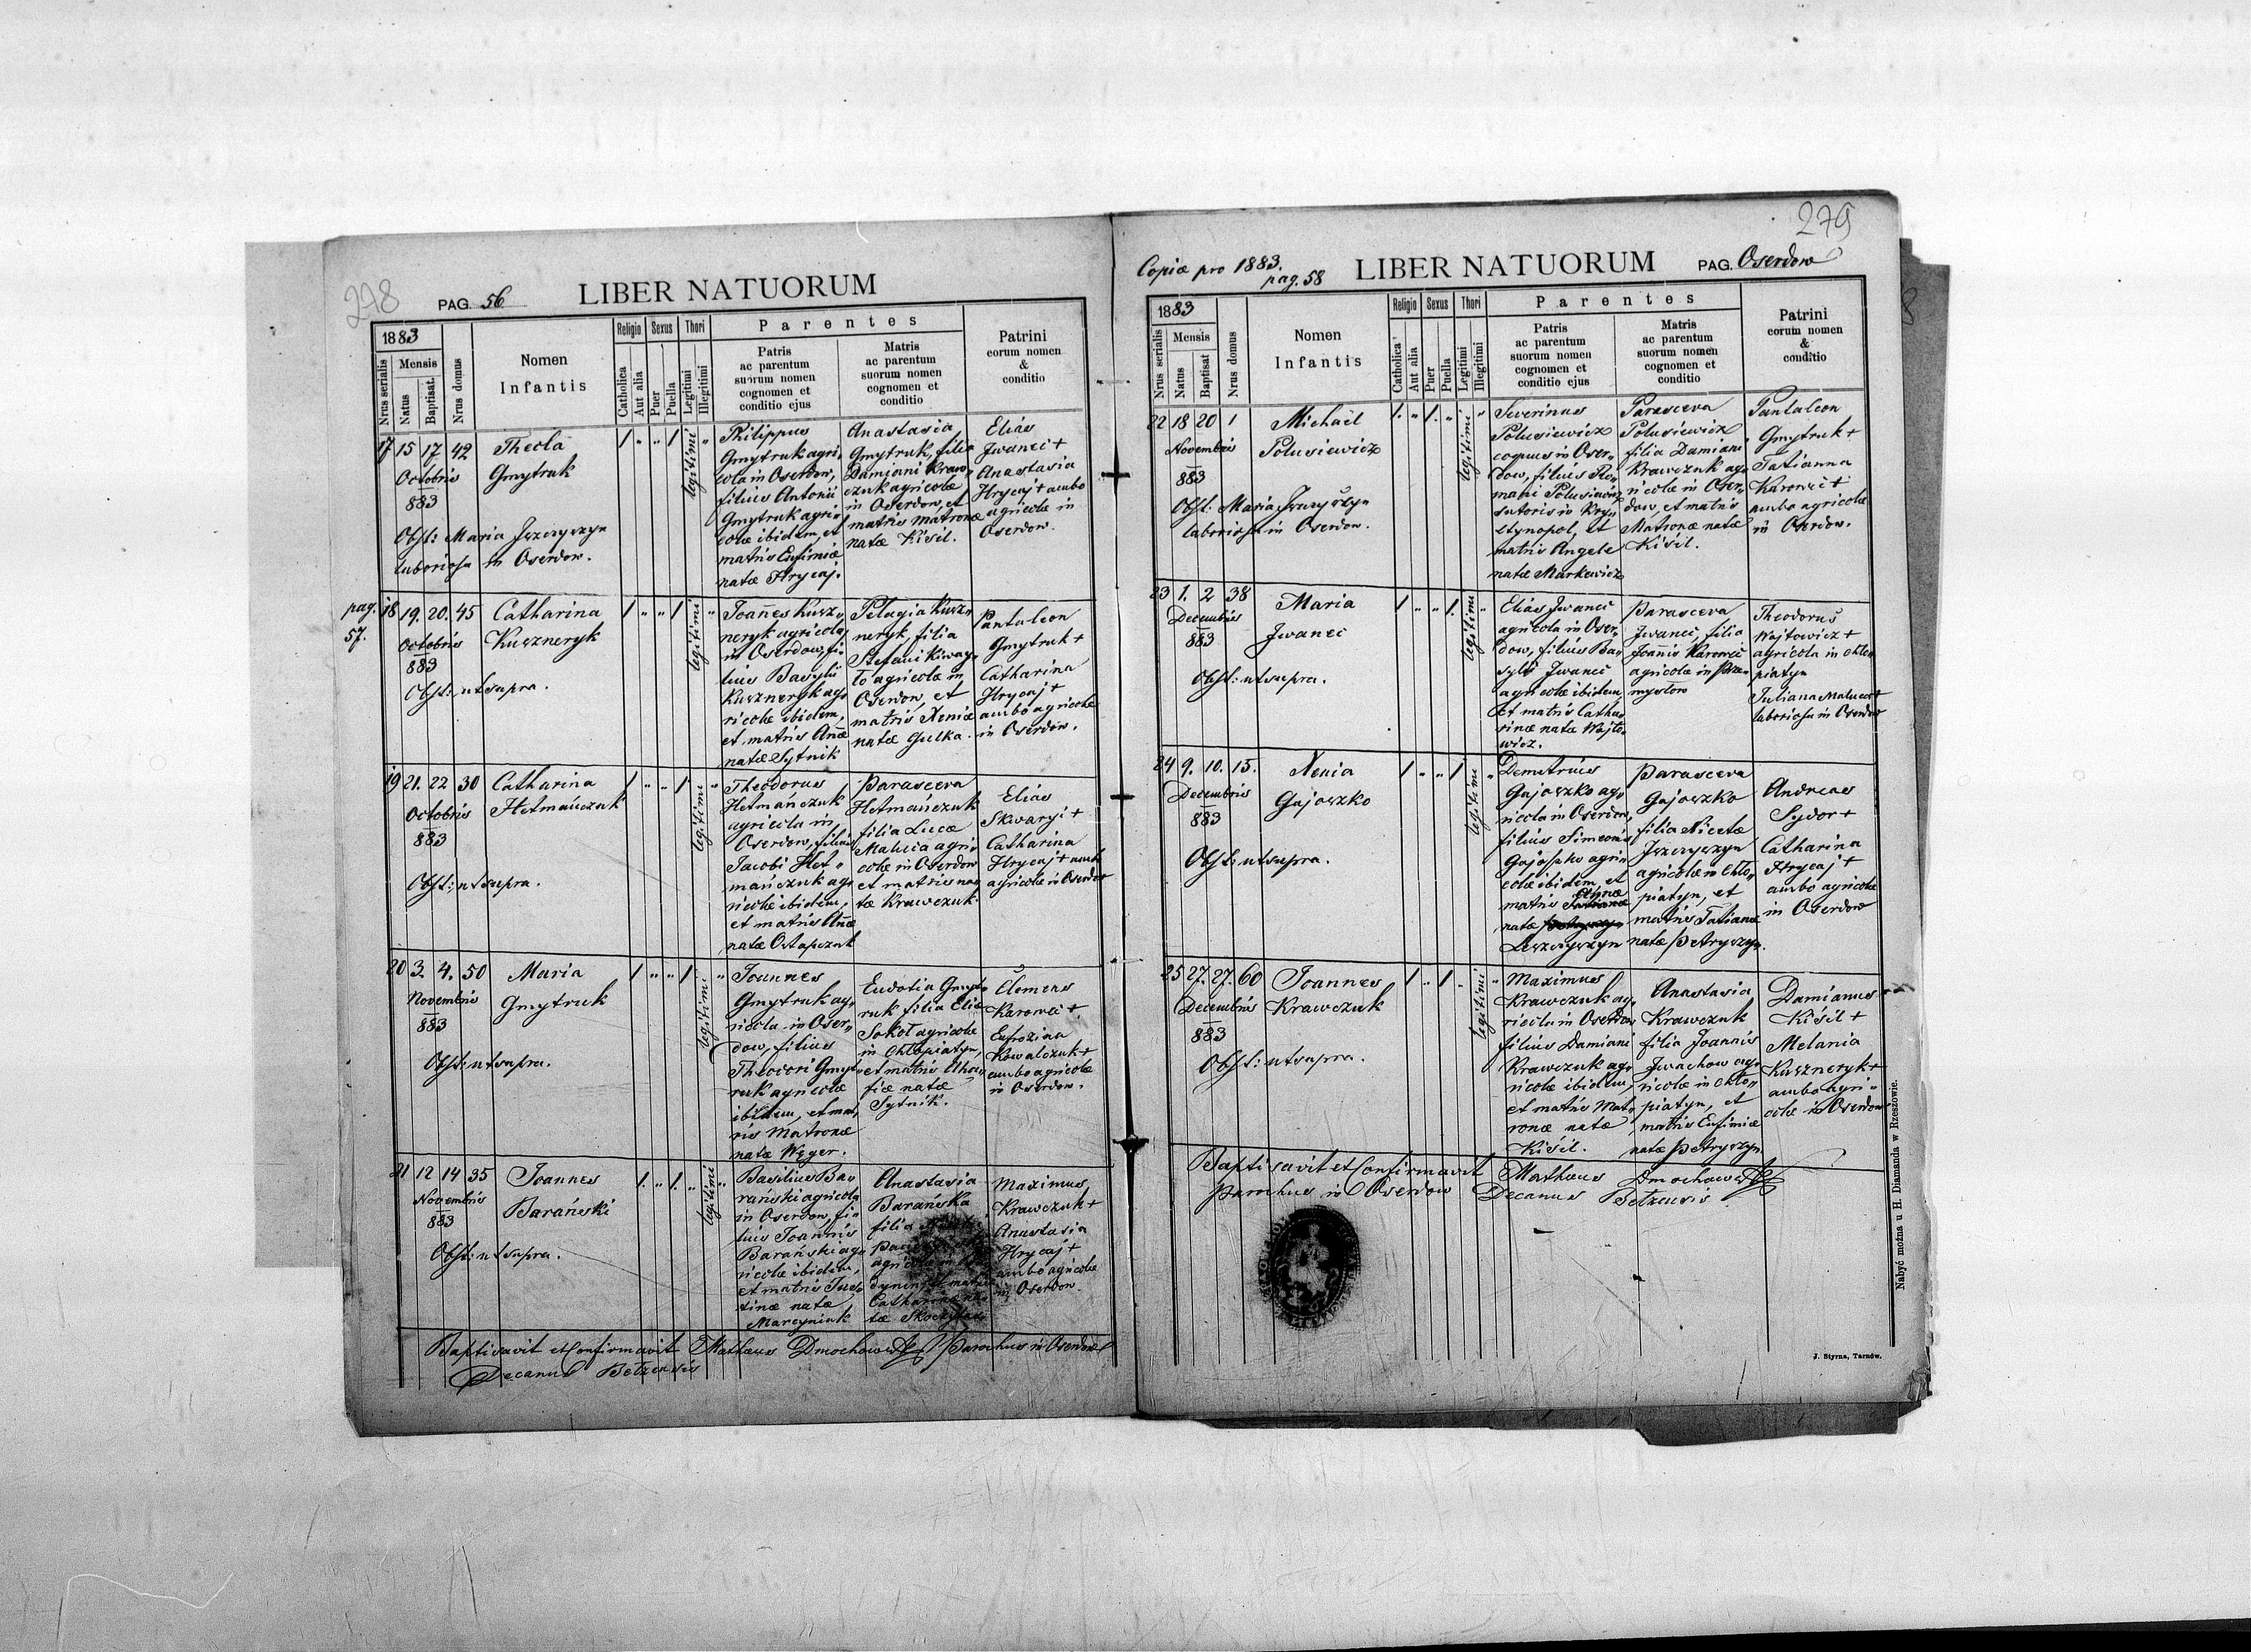 278
PAG. 56
LIBER NATUORUM
1883
Nrus serialis
Mensis
Natus
Baptisat.
Nrus domus
Nomen
Infantis
Religio
Catholica
Aut alia
Sexus
Puer
Puella
Thori
Legitimi
Illegitimi
Parentes
Patris
ac parentum
suorum nomen
cognomen et
conditio ejus
Matris
ac parentum
suorum nomen
cognomen et
conditio
Patrini
eorum nomen
&
conditio
17 15 17 42
Octobris
883
Thecla
Gmytruk
1 " " 1 legitimi "
Philippus
Gmytruk agri,
cola in Oserdow,
filius Antonii
Gmytruk agri,
colæ ibidem, et
matris Eufimiæ
natæ Hrycaj.
Anastasia
Gmytruk, filia
Damiani Kraw,
czuk agricolæ
in Oserdow, et
matris Matronæ
natæ Kisil.
Elias
Jwanci +
Anastasia
Hrycaj + ambo
agricolæ in
Oserdow.
Obst: Maria
laboriosa in Oserdow.
pag.
57.
18 19. 20. 45
Octobris
883
Catharina
Kuszneryk
1 " " 1 legitimi "
Joannes Kusz,
neryk agricola
in Oserdow, fi,
lius Basylii
Kuszneryk ag,
ricolæ ibidem,
et matris Annæ
natæ Sytnik
Pelagia Kusz,
neryk, filia
Stefani Kiway,
to agricolæ in
Oserdow, et
matris Xeniæ
natæ Gulka.
Pantaleon
Gmytruk +
Catharina
Hrycaj +
ambo agricolæ
in Oserdow.
Obst: ut supra.
19 21. 22 30
Octobris
883
Catharina
Hetmańczuk
1 " " 1 legitimi "
Theodorus
Hetmańczuk
agricola in
Oserdow, filius
Jacobi Het,
mańczuk ag,
ricolæ ibidem,
et matris Annæ
natæ Ostapczuk
Parasceva
Hetmańczuk
filia Lucæ
Malucia agri,
colæ in Oserdow
et matris na,
tæ Krawczuk.
Elias
Skwaryi +
Catharina
Hrycaj + ambo
agricolæ in Oserdow
Obst: ut supra.
20 3. 4. 50
Novembris
883
Maria
Gmytruk
1 " " 1 legitimi "
Joannes
Gmytruk ag,
ricola in Oser,
dow, filius
Theodori Gmyt,
ruk agricolæ
ibidem, et mat,
ris Matronæ
natæ Węger.
Eudotia Gmyt,
ruk filia Eliæ
Sokoł agricolæ
in Chłopiatyn,
et matris Aha,
fiæ natæ
Sytnik.
Clemens
Karowci +
Eufrozina
Kowalczuk +
ambo agricolæ
in Oserdow.
Obst: ut supra.
21 12 14 35
Novembris
883
Joannes
Barański
1. " 1. " legitimi "
Basilius Ba,
rański agricola
in Oserdow, fi,
lius Joannis
Barański ag,
ricolæ ibidem,
et matris Jus,
tinæ natæ
Marcyniuk
Anastasia
Barańska
filia
agricolæ in
et matris
Catharinæ na,
tæ
Maximus
Krawczuk +
Anastasia
Hrycaj +
ambo agricolæ
in Oserdow.
Obst: ut supra.
Baptisavit et Confirmavit Mathæus Dmochowski Parochus in Oserdow
Decanus Bełzensis
279
Copiæ pro 1883.
pag. 58
LIBER NATUORUM
PAG. Oserdow
1883
Nrus serialis
Mensis
Natus
Baptisat
Nrus domus
Nomen
Infantis
Religio
Catholica
Aut alia
Sexus
Puer
Puella
Thori
Legitimi
Illegitimi
Parentes
Patris
ac parentum
suorum nomen
cognomen et
conditio ejus
Matris
ac parentum
suorum nomen
cognomen et
conditio
Patrini
eorum nomen
&
conditio
22 18 20 1
Novembris
883
Michaël
Polusiewicz
1. " 1. " legitimi "
Severinus
Polusiewicz
coquus in Oser,
dow, filius Ro,
mani Polusiewicz
sutoris in Kry,
stynopol, et
matris Angelæ
natæ Markewicz
Parasceva
Polusiewicz
filia Damiani
Krawczuk ag,
ricolæ in Oser,
dow, et matris
Matronæ natæ
Kisil.
Pantaleon
Gmytruk +
Tatianna
Karowci +
ambo agricolæ
in Oserdow.
Obst: Maria
laboriosa in Oserdow.
23 1. 2 38
Decembris
883
Maria
Jwanci
1 " " 1. legitimi "
Elias Jwanci
agricola in Oser,
dow, filius Ba,
sylii Jwanci
agricolæ ibidem
et matris Catha,
rinæ natæ Wojto,
wicz.
Parasceva
Jwanci, filia
Joannis Karowci
agricolæ in Prze,
mysłow
Theodorus
Wojtowicz +
agricola in Chło,
piatyn
Juliana Maluca +
laboriosa in Oserdow
Obst: ut supra.
24 9. 10. 15.
Decembris
883
Xenia
Gajoszko
1 " " 1 legitimi "
Demetrius
Gajoszko ag,
ricola in Oserdow,
filius Simeonis
Gajoszko agri,
colæ ibidem, et
matris Annæ
natæ
Parasceva
Gajoszko
filia Nicetæ
agricolæ in Chło,
piatyn, et
matris Tatianæ
natæ Petryszyn.
Andreas
Sydor +
Catharina
Hrycaj +
ambo agricolæ
in Oserdow
Obst: ut supra.
25 27. 27. 60
Decembris
883
Joannes
Krawczuk
1 " 1 " legitimi "
Maximus
Krawczuk ag,
ricola in Oserdow
filius Damiani
Krawczuk ag,
ricolæ ibidem,
et matris Mat,
ronæ natæ
Kisil.
Anastasia
Krawczuk
filia Joannis
Jwachow ag,
ricolæ in Chło,
piatyn, et
matris Eufimiæ
natæ Petryszyn
Damianus
Kisil +
Melania
Kuszneryk +
ambo agri,
colæ in Oserdow
Obst: ut supra.
Baptisavit et Confirmavit Mathæus Dmochowski
Parochus in Oserdow Decanus Bełzensis.
Nabyć można u H. Diamanda w Rzeszowie.
J. Styrna, Tarnów.